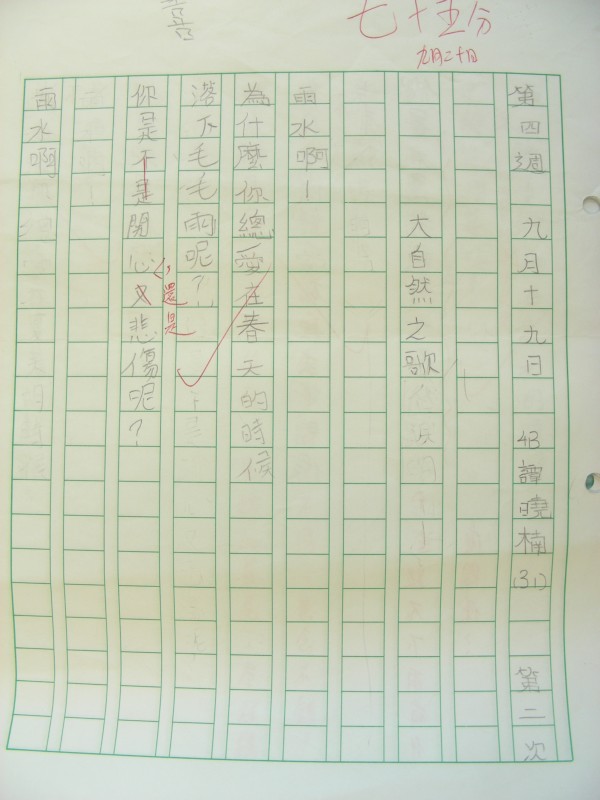 七十五分
九月二十日
第四週 九月十九日 4B譚曉楠(31) 第二次
大自然之歌
雨水啊!
為什麼你總愛在春天的時候
落下毛毛雨呢?
你是不是開心又悲傷呢?
,還是
雨水啊!